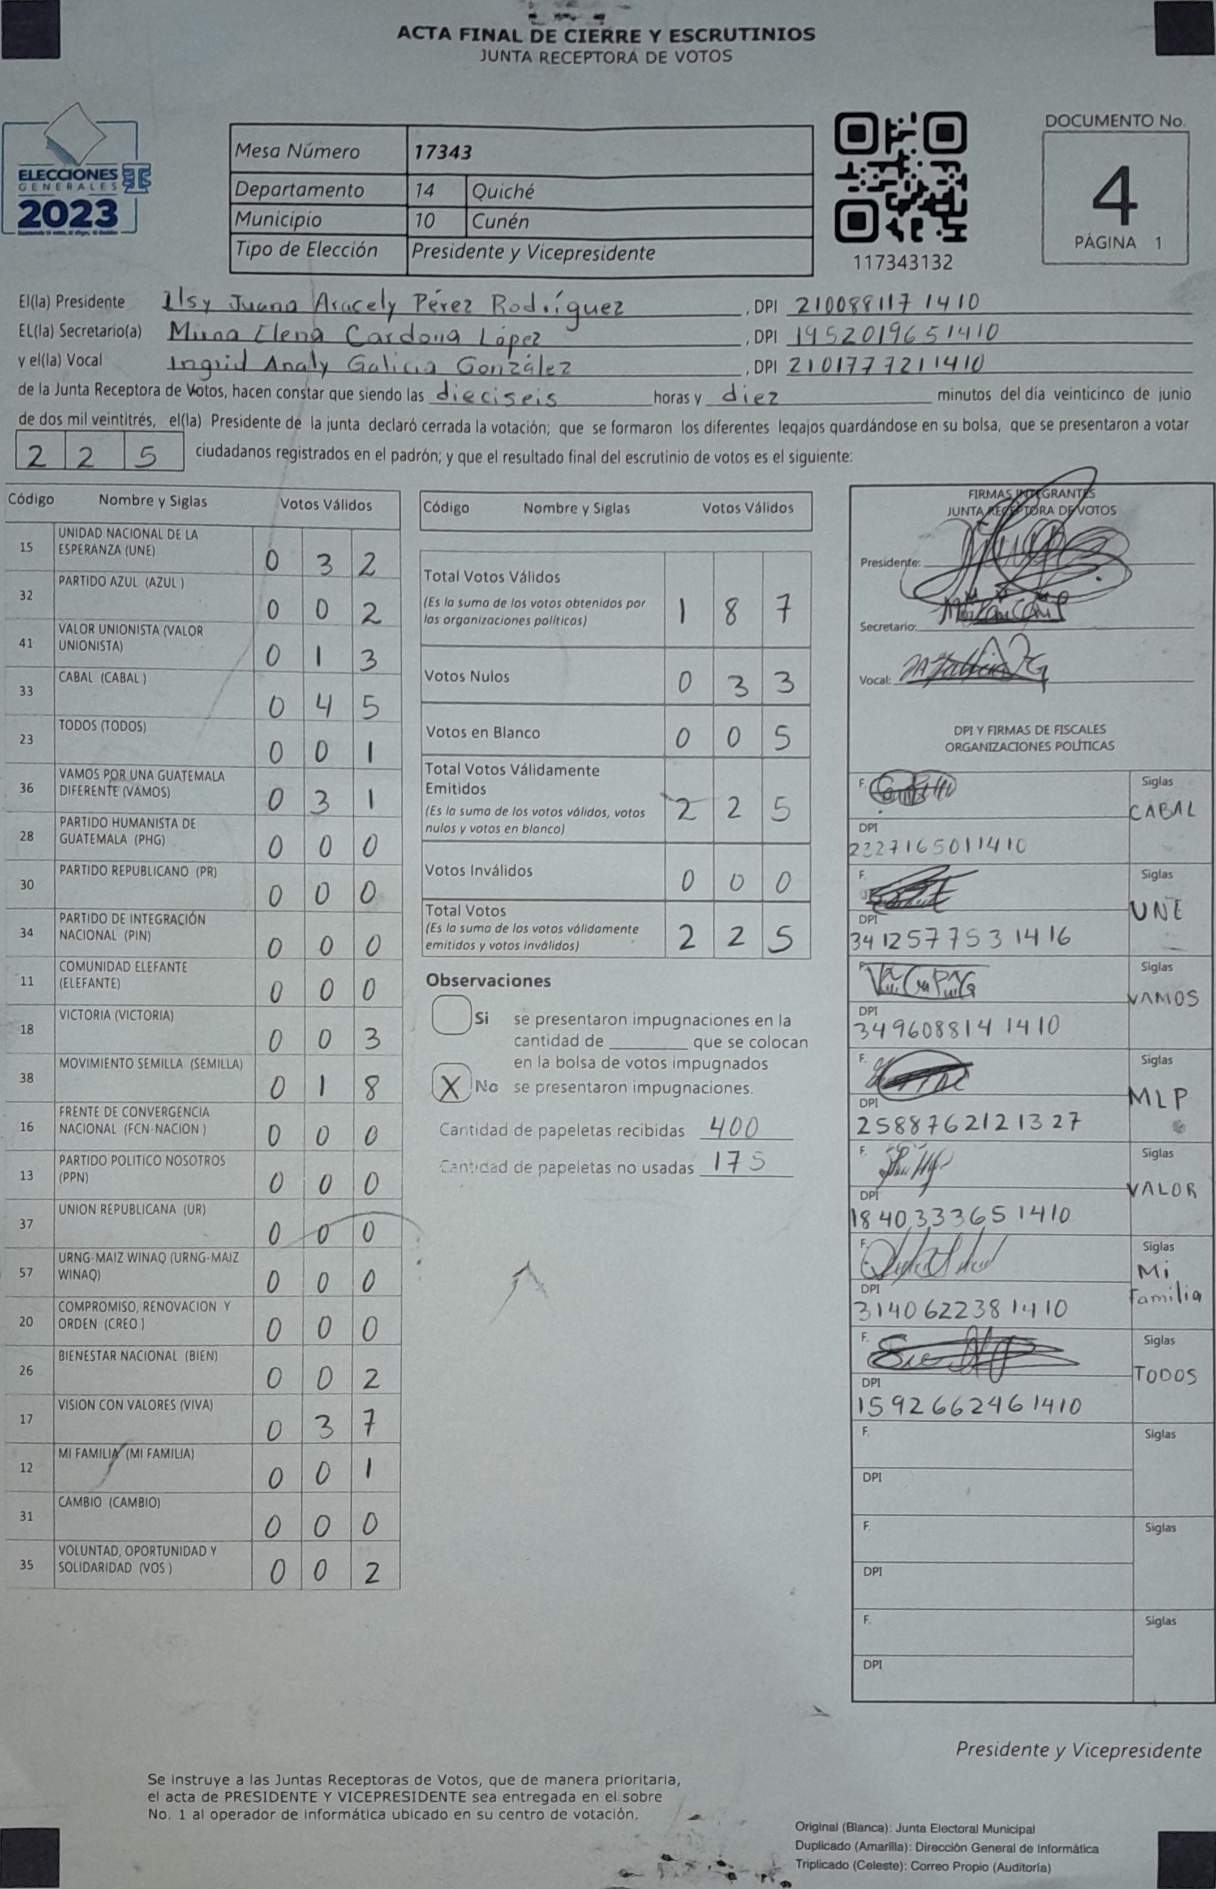 ACTA FINAL DE CIERRE Y ESCRUTINIOS
JUNTA RECEPTORA DE VOTOS
ELECCIONES
GENERALES
2023
Mesa Número 17343
Departamento 14 Quiché
Municipio 10 Cunén
Tipo de Elección Presidente y Vicepresidente
117343132
DOCUMENTO No.
4
PÁGINA 1
El(la) Presidente Ilsy Juana Aracely Pérez Rodríguez, DPI 210088117 1410
EL(la) Secretario(a) Mirna Elena Cardona López, DPI 1952019651410
y el(la) Vocal Ingrid Analy Galicia González, DPI 2101777211410
de la Junta Receptora de Votos, hacen constar que siendo las dieciseis horas y diez minutos del día veinticinco de junio
de dos mil veintitrés, el(la) Presidente de la junta declaró cerrada la votación; que se formaron los diferentes legajos guardándose en su bolsa, que se presentaron a votar
2 2 5 ciudadanos registrados en el padrón; y que el resultado final del escrutinio de votos es el siguiente:
Código Nombre y Siglas Votos Válidos
15 UNIDAD NACIONAL DE LA
ESPERANZA (UNE) 0 3 2
32 PARTIDO AZUL (AZUL ) 0 0 2
41 VALOR UNIONISTA (VALOR
UNIONISTA) 0 1 3
33 CABAL (CABAL ) 0 4 5
23 TODOS (TODOS) 0 0 1
36 VAMOS POR UNA GUATEMALA
DIFERENTE (VAMOS) 0 3 1
28 PARTIDO HUMANISTA DE
GUATEMALA (PHG) 0 0 0
30 PARTIDO REPUBLICANO (PR) 0 0 0
34 PARTIDO DE INTEGRACIÓN
NACIONAL (PIN) 0 0 0
11 COMUNIDAD ELEFANTE
(ELEFANTE) 0 0 0
18 VICTORIA (VICTORIA) 0 0 3
38 MOVIMIENTO SEMILLA (SEMILLA) 0 1 8
16 FRENTE DE CONVERGENCIA
NACIONAL (FCN-NACION ) 0 0 0
13 PARTIDO POLITICO NOSOTROS
(PPN) 0 0 0
37 UNION REPUBLICANA (UR) 0 0 0
57 URNG-MAIZ WINAQ (URNG-MAIZ
WINAQ) 0 0 0
20 COMPROMISO, RENOVACION Y
ORDEN (CREO ) 0 0 0
26 BIENESTAR NACIONAL (BIEN) 0 0 2
17 VISION CON VALORES (VIVA) 0 3 7
12 MI FAMILIA (MI FAMILIA) 0 0 1
31 CAMBIO (CAMBIO) 0 0 0
35 VOLUNTAD, OPORTUNIDAD Y
SOLIDARIDAD (VOS ) 0 0 2
Código Nombre y Siglas Votos Válidos
Total Votos Válidos
(Es la suma de los votos obtenidos por
las organizaciones políticas) 1 8 7
Votos Nulos 0 3 3
Votos en Blanco 0 0 5
Total Votos Válidamente
Emitidos
(Es la suma de los votos válidos, votos
nulos y votos en blanco) 2 2 5
Votos Inválidos 0 0 0
Total Votos
(Es la suma de los votos válidamente
emitidos y votos inválidos) 2 2 5
Observaciones
Si se presentaron impugnaciones en la
cantidad de ________ que se colocan
en la bolsa de votos impugnados
X No se presentaron impugnaciones.
Cantidad de papeletas recibidas 400
Cantidad de papeletas no usadas 175
FIRMAS INTEGRANTES
JUNTA RECEPTORA DE VOTOS
Presidente:
Secretario:
Vocal:
DPI Y FIRMAS DE FISCALES
ORGANIZACIONES POLÍTICAS
F. Siglas
CABAL
DPI
2227165011410
F. Siglas
UNE
DPI
3412577531416
F. Siglas
VAMOS
DPI
3496088141410
F. Siglas
MLP
DPI
2588762121327
F. Siglas
VALOR
DPI
1840333651410
F. Siglas
Mi
Familia
DPI
3140622381410
F. Siglas
TODOS
DPI
1592662461410
F. Siglas
DPI
F. Siglas
DPI
F. Siglas
DPI
Presidente y Vicepresidente
Se instruye a las Juntas Receptoras de Votos, que de manera prioritaria,
el acta de PRESIDENTE Y VICEPRESIDENTE sea entregada en el sobre
No. 1 al operador de informática ubicado en su centro de votación.
Original (Blanca): Junta Electoral Municipal
Duplicado (Amarilla): Dirección General de Informática
Triplicado (Celeste): Correo Propio (Auditoría)